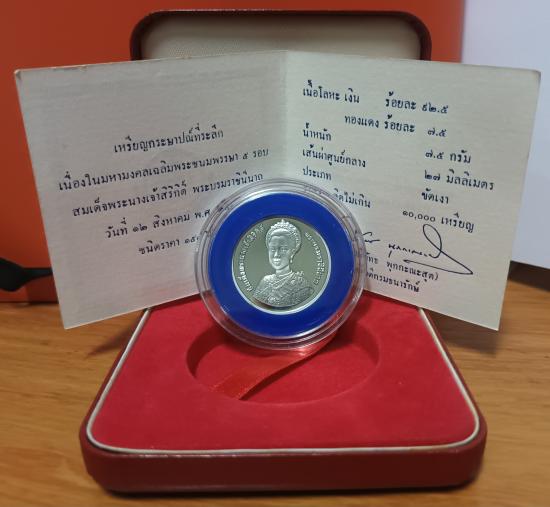 เหรียญกระษาปณ์ที่ระลึก
เนื่องในมหามงคลเฉลิมพระชนมพรรษา ๕ รอบ
สมเด็จพระนางเจ้าสิริกิติ์ พระบรมราชินีนาถ
วันที่ ๑๒ สิงหาคม พ.ศ.
ชนิดราคา ๑๕
เนื้อโลหะ เงิน ร้อยละ ๙๒.๕
ทองแดง ร้อยละ ๗.๕
น้ำหนัก ๗.๕ กรัม
เส้นผ่าศูนย์กลาง ๒๗ มิลลิเมตร
ประเภท ขัดเงา
ผลิตไม่เกิน ๑๐,๐๐๐ เหรียญ
พุกกะณะสุต)